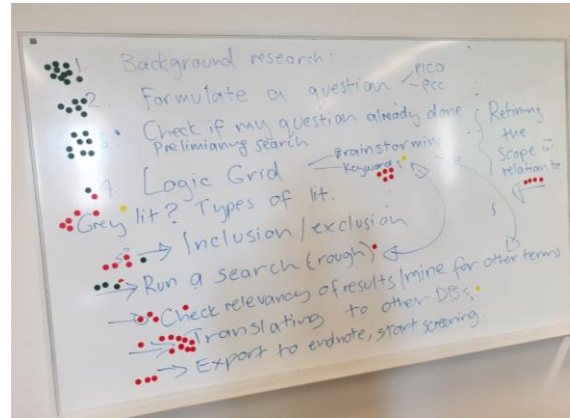 1. Background research:
2. Formulate a question
PICO
PCC
3. Check if my question already done
Prelimianry search.
4. Logic Grid
Brainstorming
Keywords
Refining
the
scope w
relation to
Grey lit? Types of lit.
→ Inclusion/exclusion
→ Run a search (rough)
→ Check relevancy of results/mine for other terms
→ Translating to other DBs
→ Export to endnote, start screening.